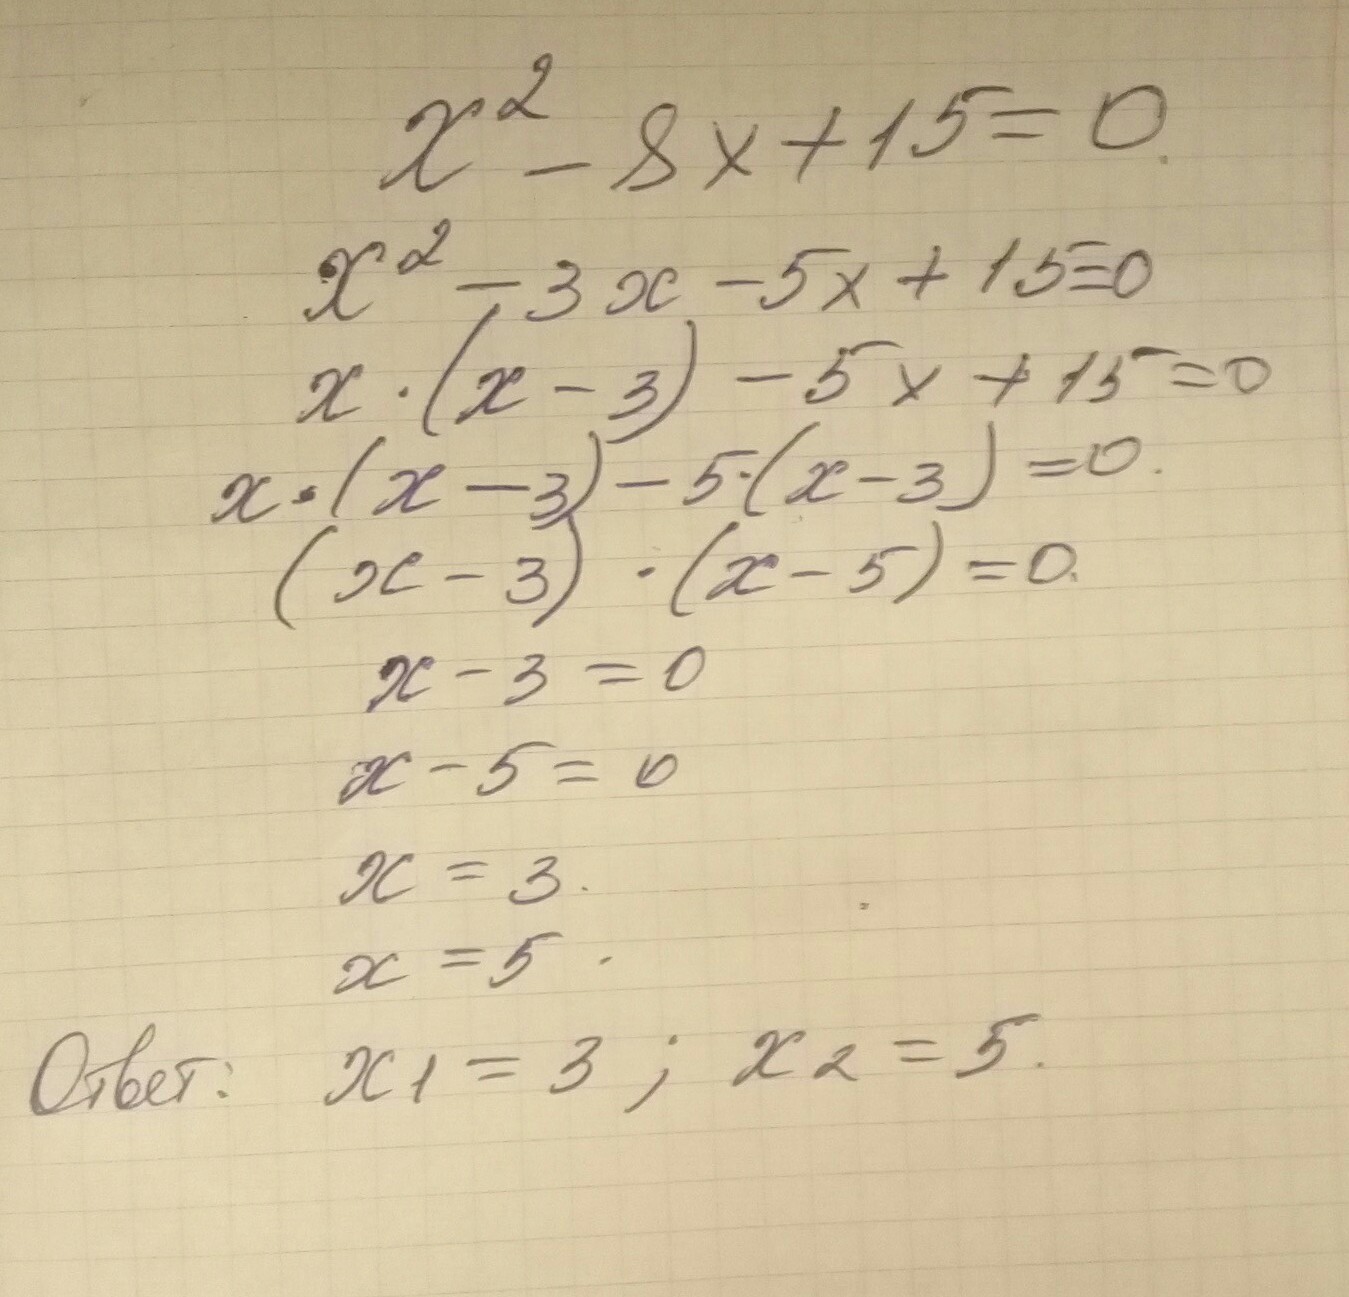 x² - 8x + 15 = 0.
x² - 3x - 5x + 15 = 0
x · (x - 3) - 5x + 15 = 0
x · (x - 3) - 5 · (x - 3) = 0.
(x - 3) · (x - 5) = 0.
x - 3 = 0
x - 5 = 0
x = 3.
x = 5.
Ответ: x₁ = 3 ; x₂ = 5.